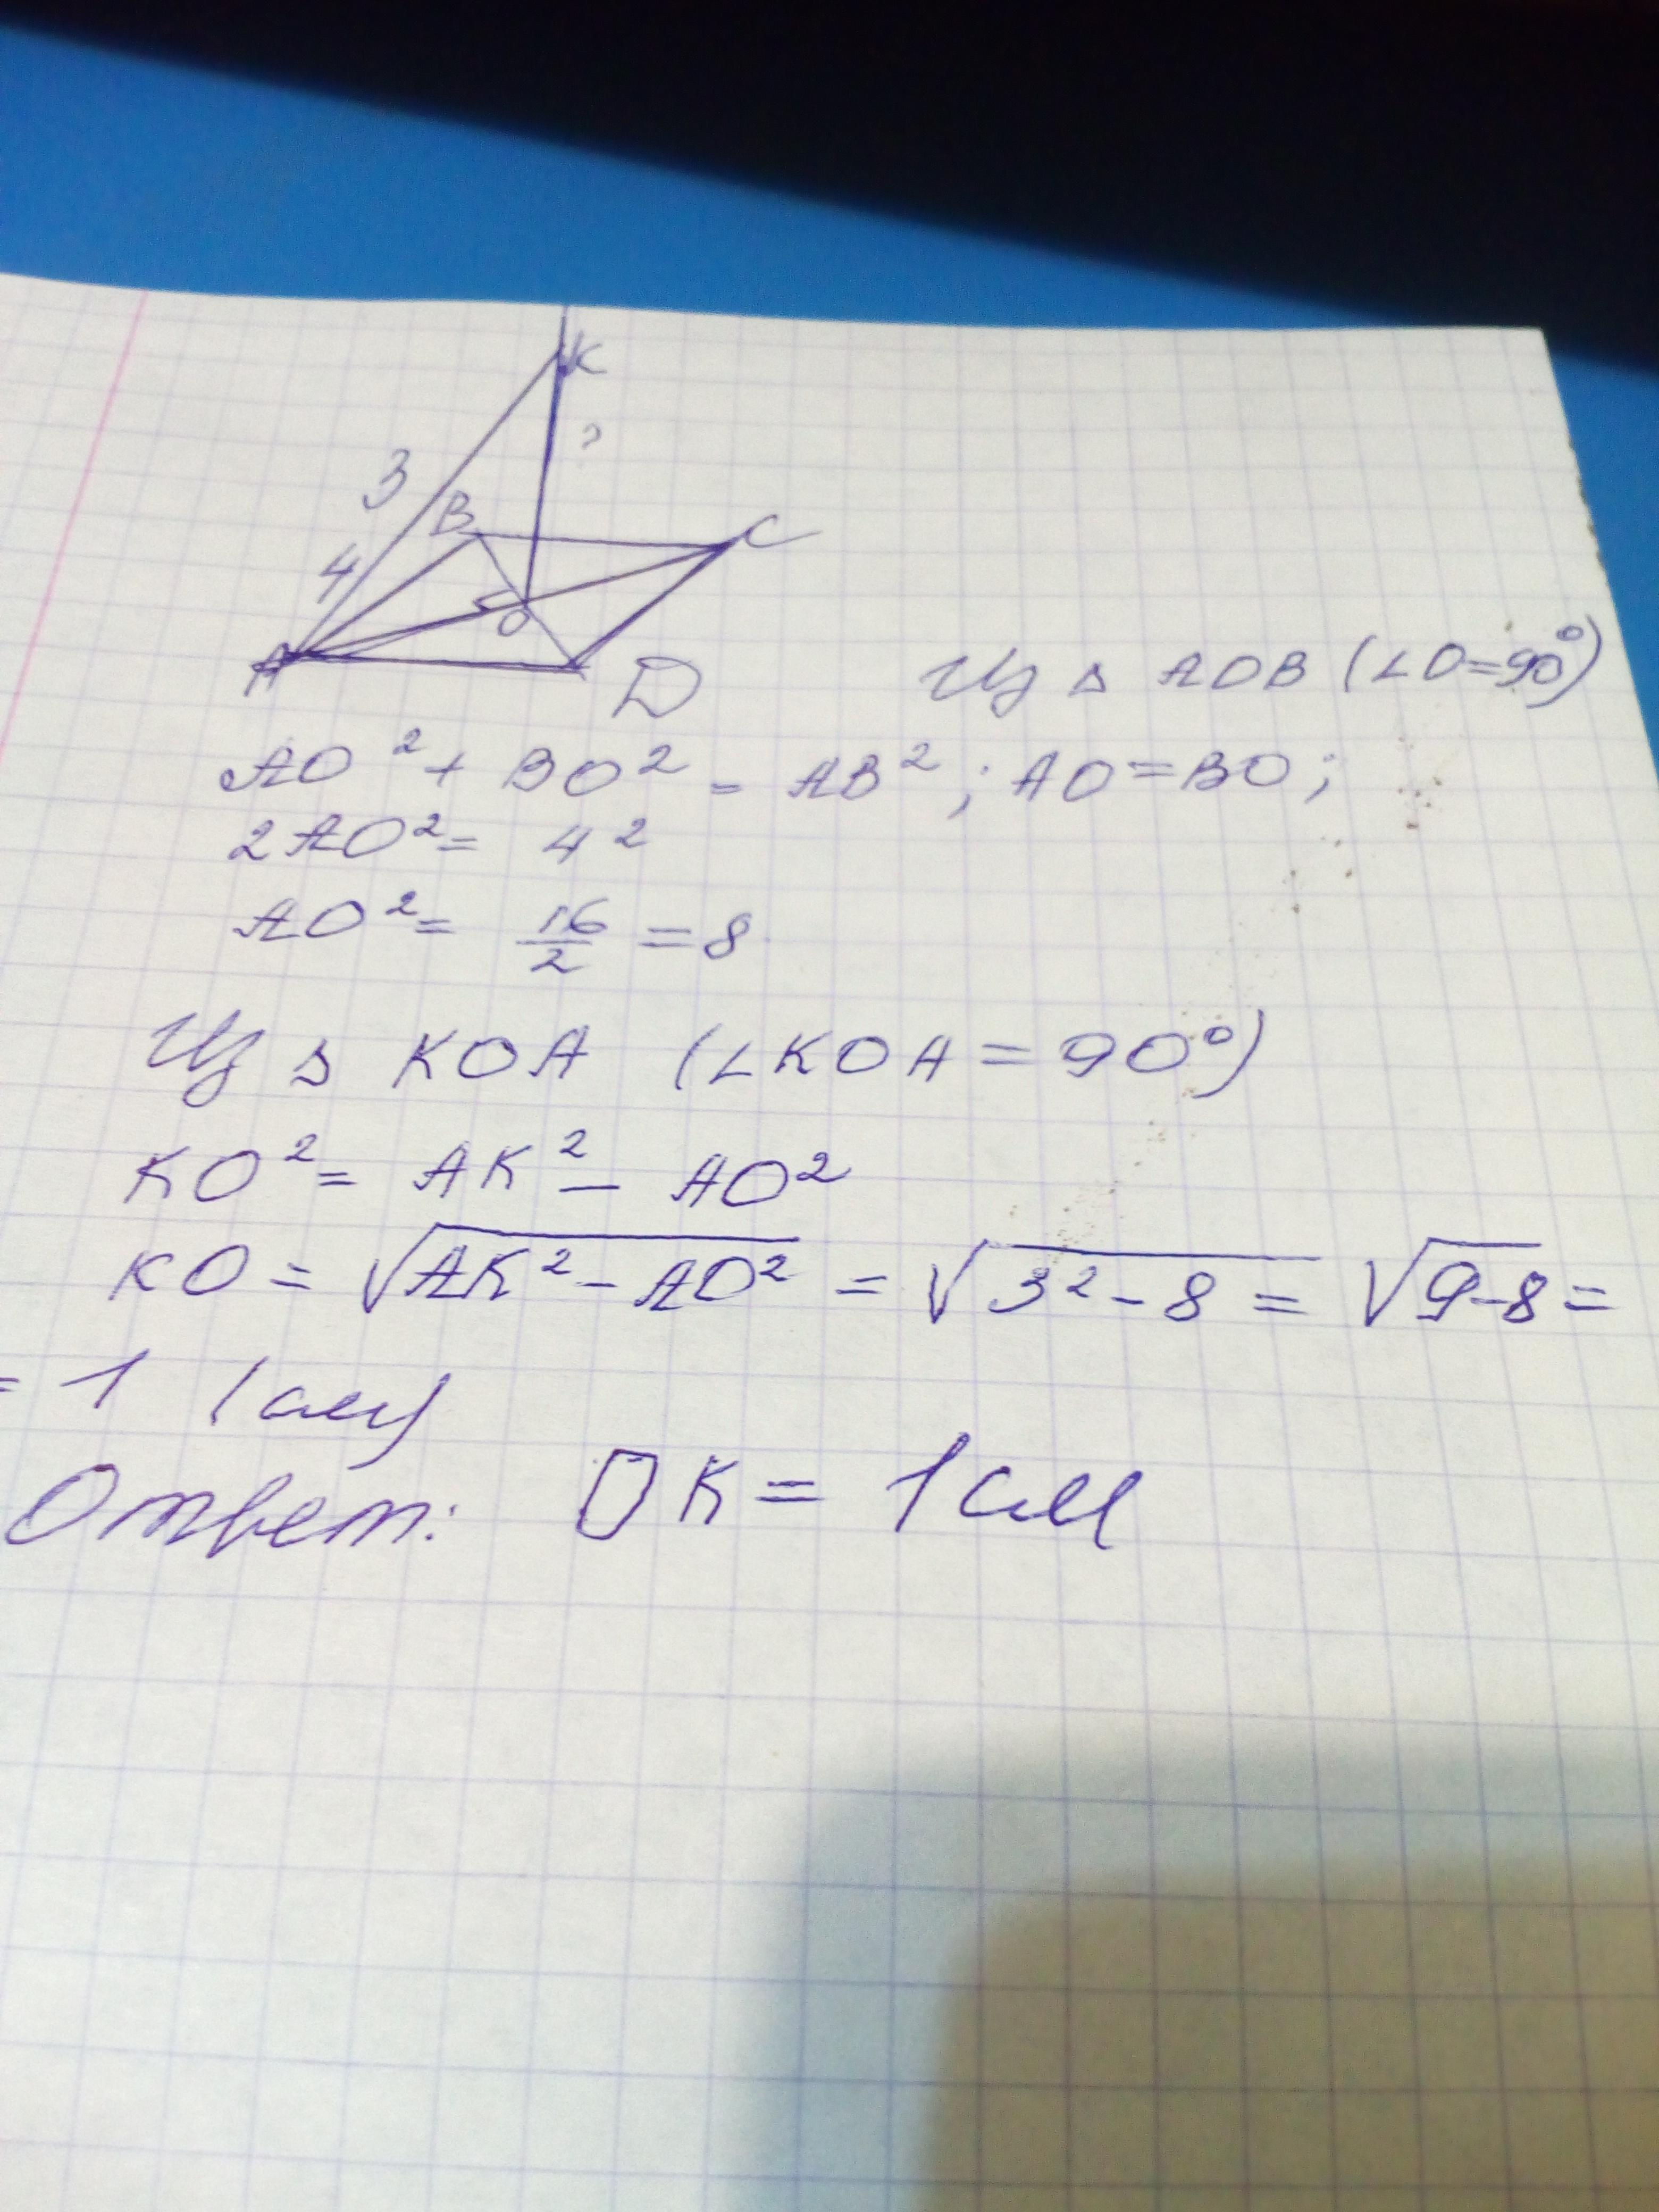 K
?
3
B
C
4
O
A
D
Из Δ AOB (∠O=90°)
AO² + BO² = AB²; AO=BO;
2AO² = 4²
AO² = 16/2 = 8
Из Δ KOA (∠KOA = 90°)
KO² = AK² - AO²
KO = √AK² - AO² = √3² - 8 = √9-8 =
= 1 (см)
Ответ: OK = 1см